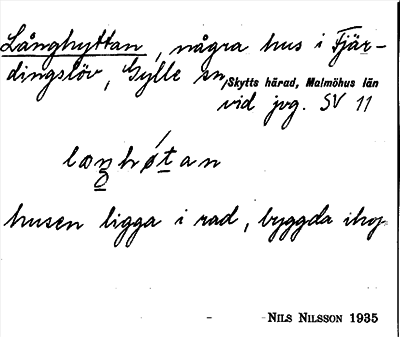 Långhyttan, några hus i Fjär-
dingslöv, Gylle sn, Skytts härad, Malmöhus län
vid jvg. SV 11
husen ligga i rad, byggda ihop
NILS NILSSON 1935